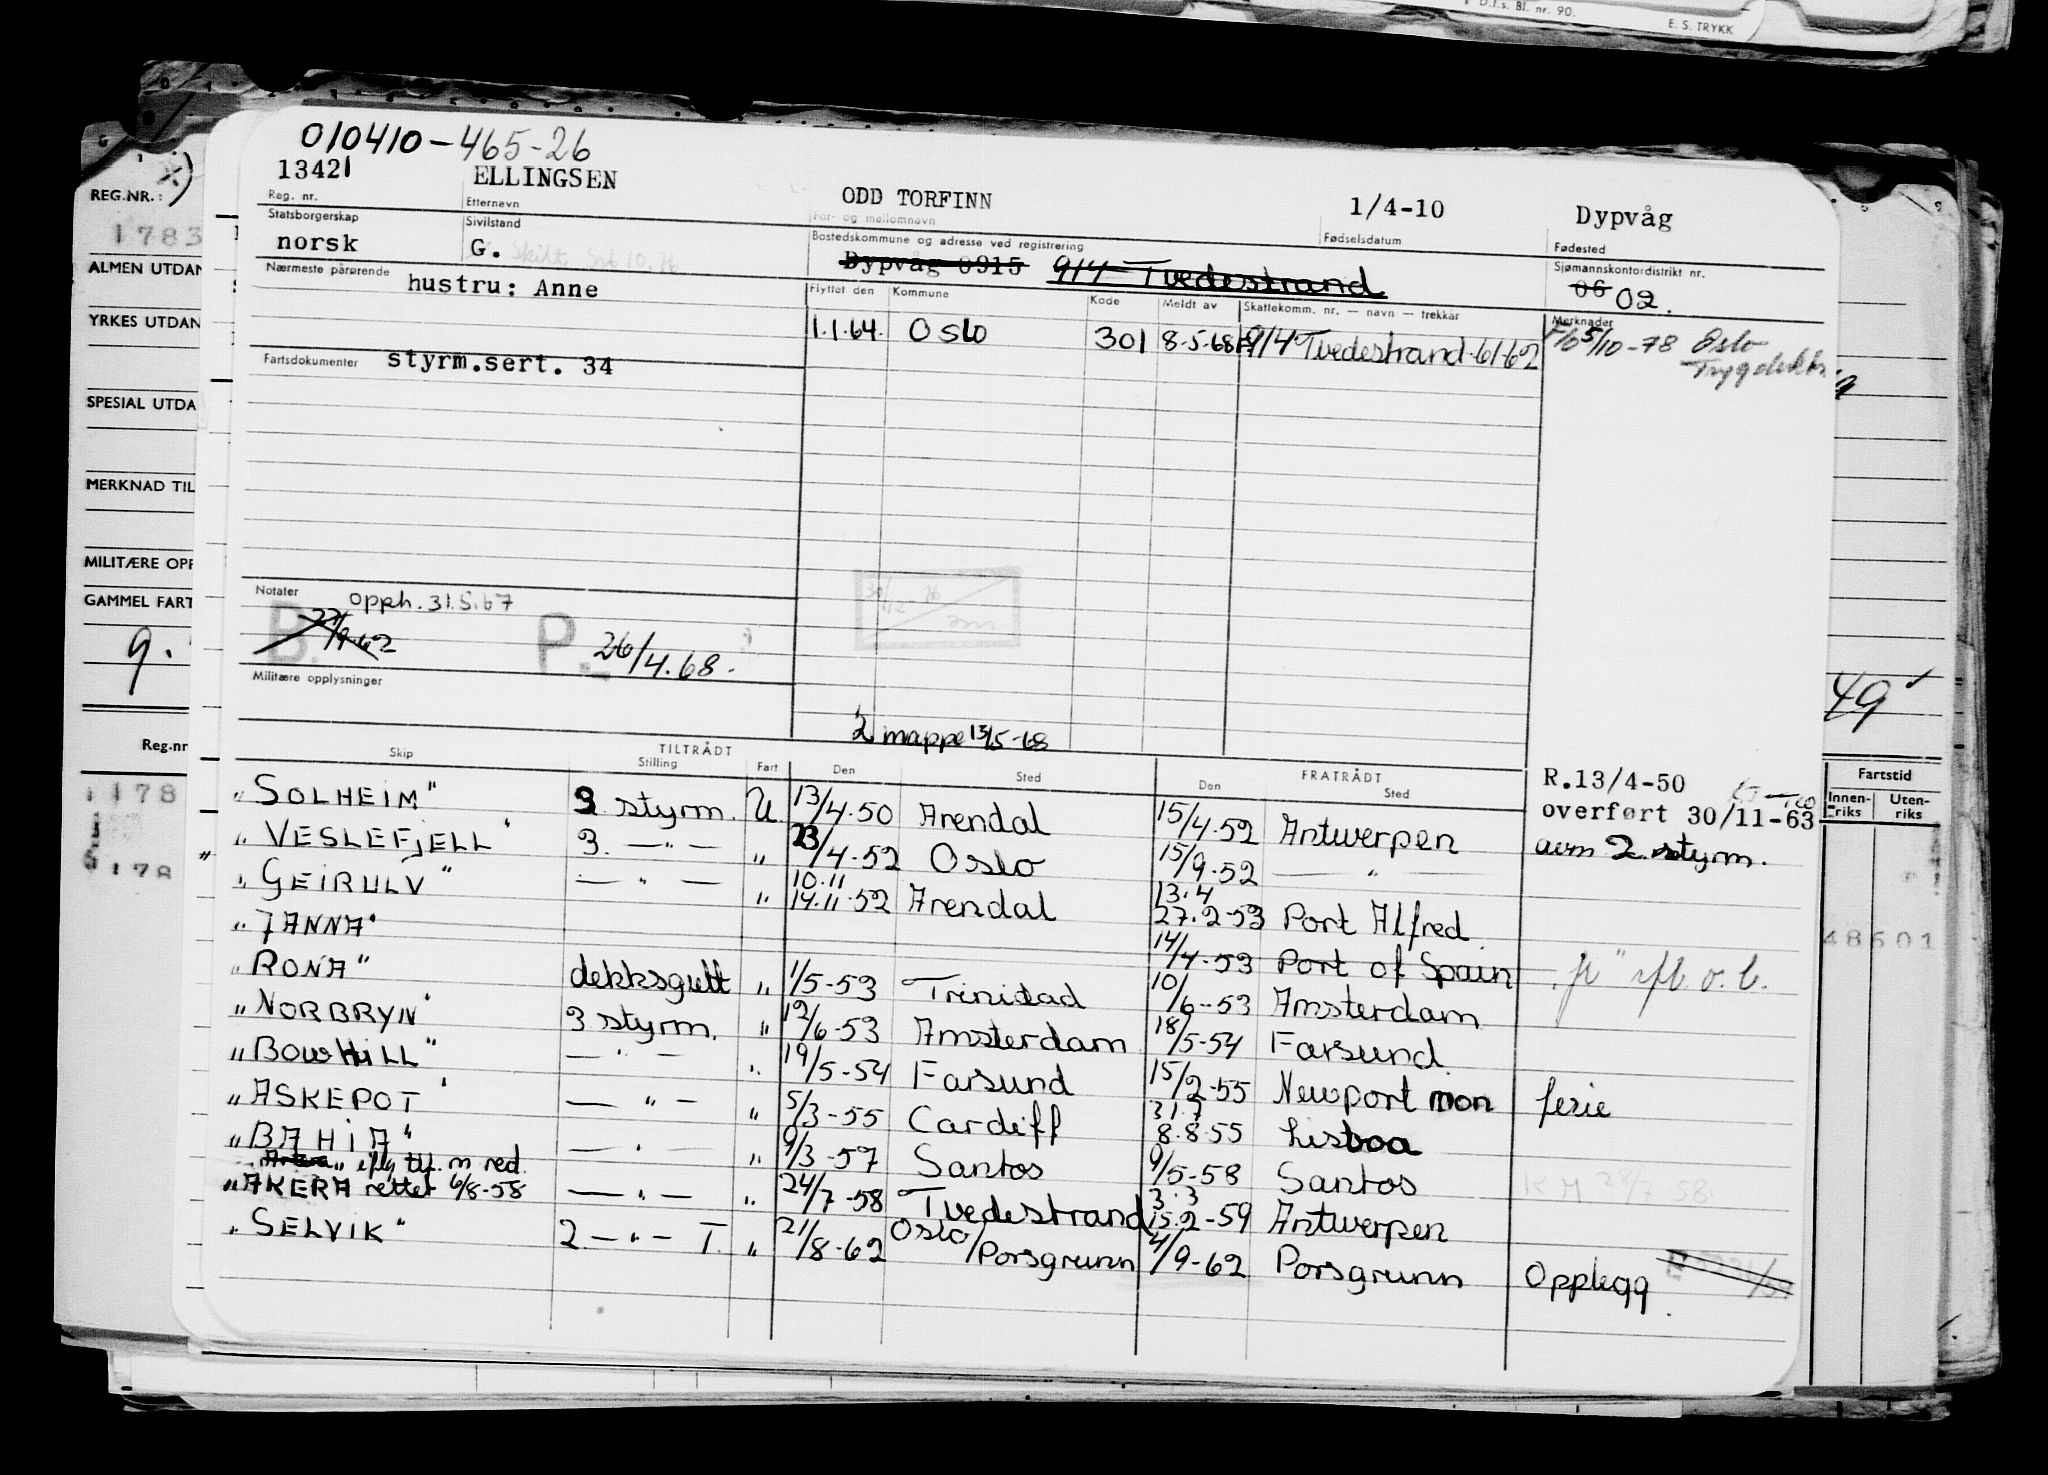 D.f.s. Bl. nr. 90.
E. S. TRYKK
010410-465-26
REG.NR.: x)
13421 ELLINGSEN ODD TORFINN 1/4-10 Dypvåg
Reg. nr. Etternavn For- og mellomnavn Fødselsdatum Fødested
1783
Statsborgerskap Sivilstand Bostedskommune og adresse ved registrering Sjømannskontordistrikt nr.
norsk G. Skilt Dypvåg 0915 914 Tvedestrand 06 02.
ALMEN UTDAN
Nærmeste pårørende hustru: Anne
Flyttet den Kommune Kode Meldt av Skattekomm. nr. — navn — trekkår Merknader
YRKES UTDAN
1.1.64. Oslo 301 8-5-68 914 Tvedestrand 61-62 5/10-78 Oslo
Fartsdokumenter styrm.sert. 34
SPESIAL UTDA
MERKNAD TIL
MILITÆRE OPP
GAMMEL FART
Notater opph. 31.5.67
B. 22/9-62 P. 26/4.68.
9.
Militære opplysninger
49
2 mappe 13/5-68
Reg.nr
Skip TILTRÅDT FRATRÅDT
Stilling Fart Den Sted Den Sted
R.13/4-50
overført 30/11-63
Fartstid
Innen-riks Uten-riks
"SOLHEIM" 3 styrm. U 13/4.50 Arendal 15/4.52 Antwerpen
"VESLEFJELL" 3. —"— " 23/4.52 Oslo 15/9.52 —"— som 2. styrm.
"GEIRULV" —"— " 10.11 14.11.52 Arendal 13.4 27.2-53 Port Alfred
"JANNA" 14/4-53 Port of Spain
"RONA" dekksgutt " 1/5-53 Trinidad 10/6-53 Amsterdam
"NORBRYN" 3 styrm. " 12/6-53 Amsterdam 18/5-54 Farsund
"BOWHILL" —"— " 19/5-54 Farsund 15/2-55 Newport mon ferie
"ASKEPOT" —"— " 5/3-55 Cardiff 31.7 8.8.55 Lisboa
"BAHIA" —"— " 9/3-57 Santos 9/5-58 Santos
iflg tlf. m red.
"AKERA rettet 6/8-58 —"— " 24/7-58 Tvedestrand 3.3 15.2-59 Antwerpen
"SELVIK" 2 —"— T. " 21/8-62 Oslo/Porsgrunn 4/9-62 Porsgrunn Opplegg.
48601